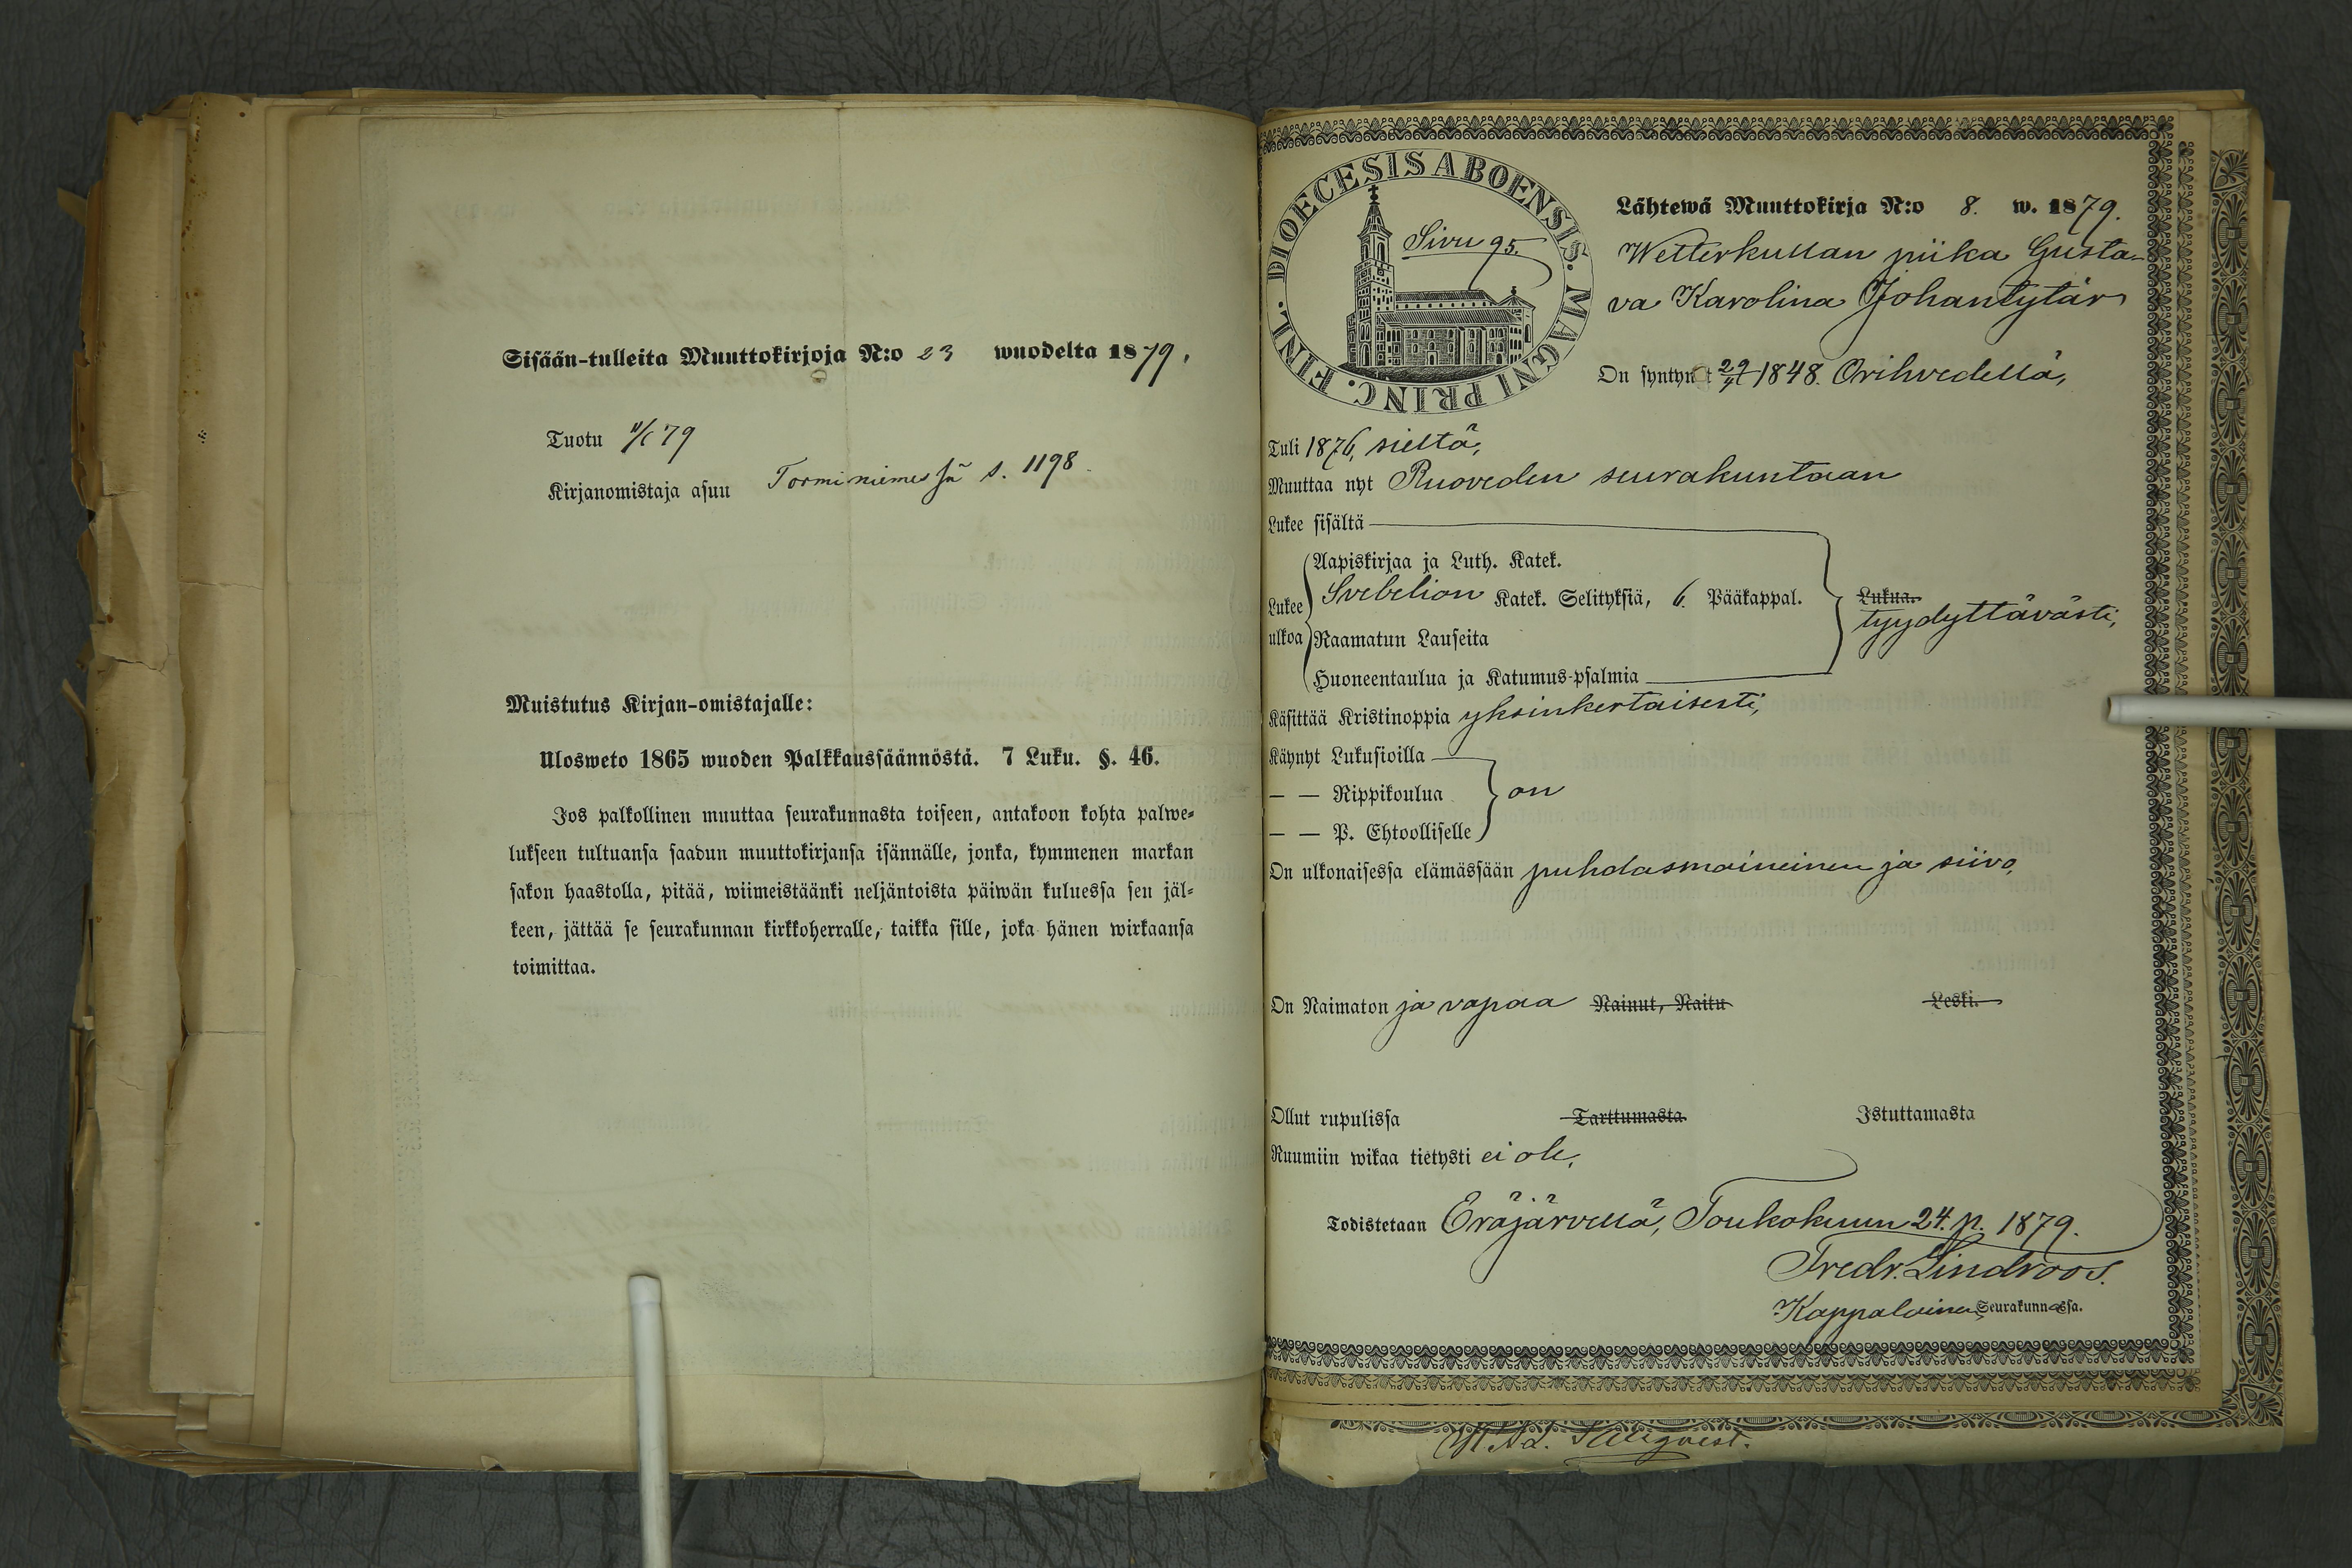 Sisään-tulleita Muuttokirjoja N:o 23 wuodelta 1879.
Tuotu 11/6 79
Kirjanomistaja asuu Torminiemessä s. 1198
Muistutus Kirjan-omistajalle:
Ulosweto 1865 wuoden Palkkaussäännöstä. 7 Luku. §. 46.
Jos palkollinen muuttaa seurakunnasta toiseen, antakoon kohta palwe-
lukseen tultuansa saadun muuttokirjansa isännälle, jonka, kymmenen markan
sakon haastolla, pitää, wiimeistäänki neljäntoista päiwän kuluessa sen jäl-
keen, jättää se seurakunnan kirkkoherralle, taikka sille, joka hänen wirkaansa
toimittaa.
DIOECESIS ABOENSIS. MAGNI PRINC. FINL.
Sivu 95.
Lähtewä Muuttokirja N:o 8. w. 1879.
Wetterkullan piika Gusta-
va Karolina Johantytär
On syntynyt 29/ 1848. Orihvedellä,
Tuli 1876, sieltä,
Muuttaa nyt Ruoveden seurakuntaan
Lukee sisältä
Aapiskirjaa ja Luth. Katek.
Lukee ulkoa Svebelion Katek. Selityksiä, 6. Pääkappal.
Lukua.
tyydyttävästi,
Raamatun Lauseita
Huoneentaulua ja Katumus-psalmia
Käsittää Kristinoppia yksinkertaisesti,
Käynyt Lukusioilla
— — Rippikoulua on
— — P. Ehtoolliselle
On ulkonaisessa elämässään puhdasmaineinen ja siivo,
On Naimaton ja vapaa Nainut, Naitu Leski.
Ollut rupulissa Tarttumasta Istuttamasta
Ruumiin wikaa tietysti ei ole,
Todistetaan Eräjärvellä, Toukokuun 24. p. 1879.
Fredr. Lindroos.
Kappalainen Seurakunnassa.